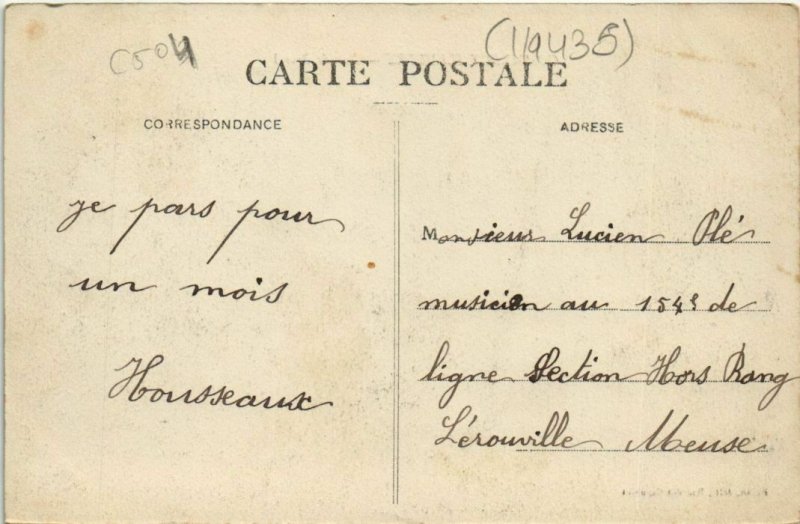 (504
(119435)
CARTE POSTALE
CORRESPONDANCE
je pars pour
un mois
Housseaux
ADRESSE
Monsieur Lucien Plé
musicien au 154e de
ligne Section Hors Rang
Lérouville Meuse